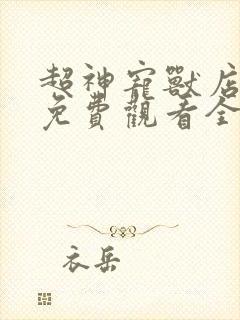 超神寵獸店
免費觀看全
衣岳